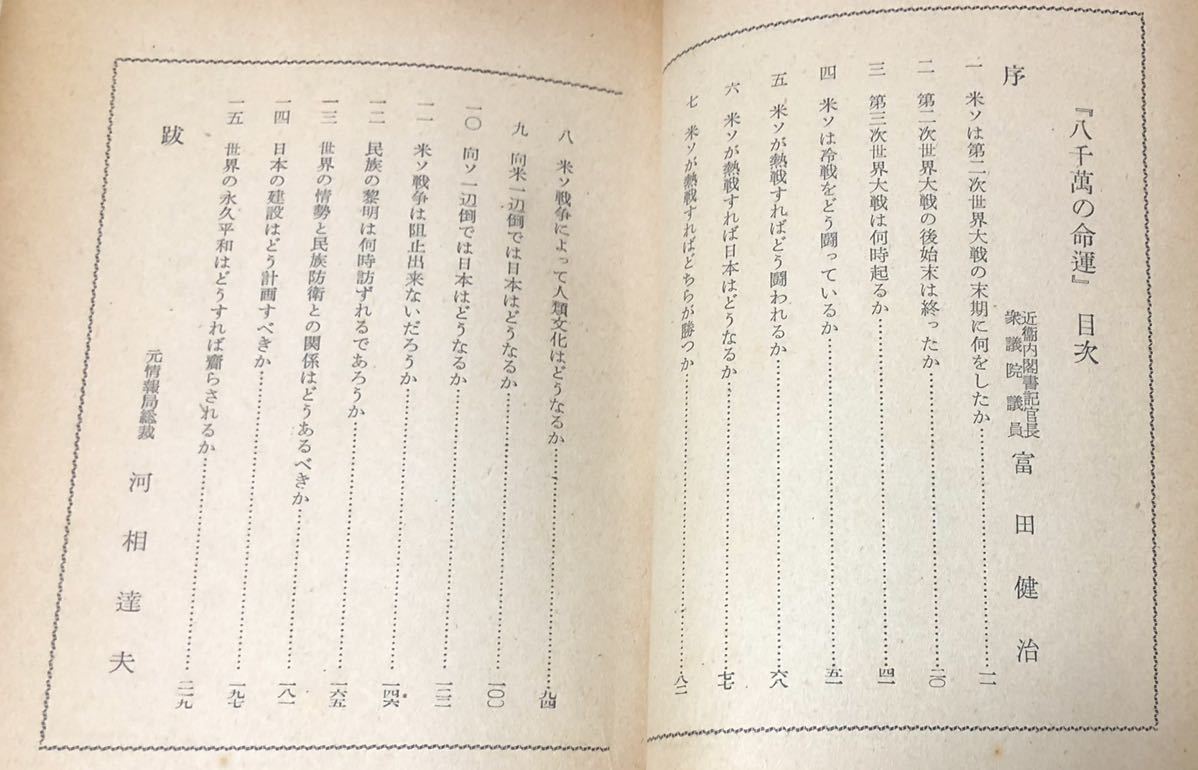 『八千萬の命運』 目次
序
近衞内閣書記官長
衆議院議員
富田健治
一 米ソは第二次世界大戦の末期に何をしたか…………一一
二 第二次世界大戦の後始末は終ったか…………二〇
三 第三次世界大戦は何時起るか…………四一
四 米ソは冷戦をどう闘っているか…………五一
五 米ソが熱戦すればどう闘われるか…………六八
六 米ソが熱戦すれば日本はどうなるか…………七七
七 米ソが熱戦すればどちらが勝つか…………八二
八 米ソ戦争によって人類文化はどうなるか…………九四
九 向米一辺倒では日本はどうなるか…………一〇〇
一〇 向ソ一辺倒では日本はどうなるか…………
一一 米ソ戦争は阻止出来ないだろうか…………
一二 民族の黎明は何時訪ずれるであろうか…………一四六
一三 世界の情勢と民族防衛との関係はどうあるべきか…………一六五
一四 日本の建設はどう計画すべきか…………一八一
一五 世界の永久平和はどうすれば齎らされるか…………
跋
元情報局総裁
河相達夫